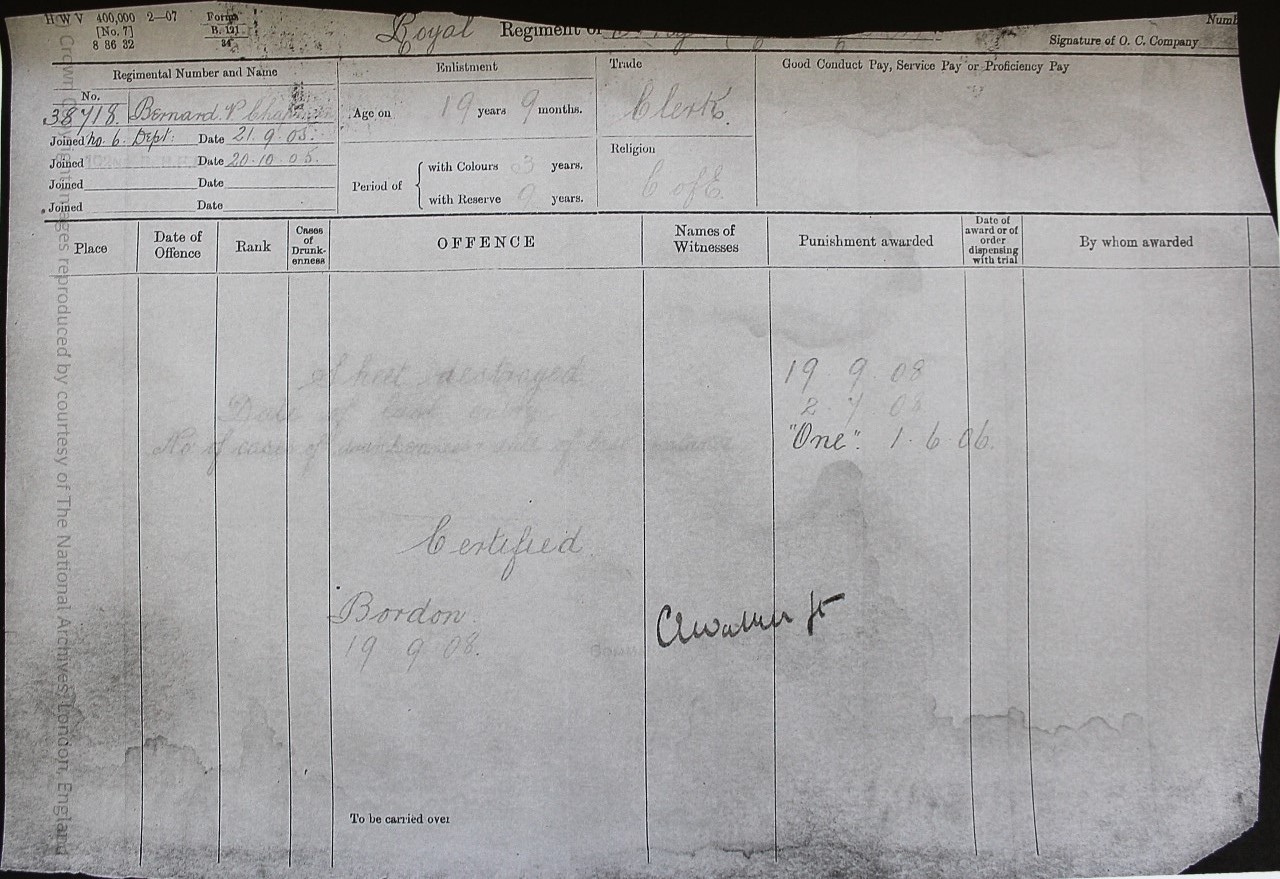 H W V 400,000 2—07
[No. 7]
8 86 32
Forms
B. 121
34
Royal Regiment of
Numb
Signature of O. C. Company
Regimental Number and Name
No.
38718. Bernard. P. Chapman
Joined No. 6. Dept: Date 21. 9. 05.
Joined Date 20.10.05.
Joined Date
Joined Date
Enlistment
Age on 19 years 9 months.
Period of { with Colours 3 years.
with Reserve 9 years.
Trade
Clerk.
Religion
C of E.
Good Conduct Pay, Service Pay or Proficiency Pay
Place
Date of Offence
Rank
Cases of Drunk-enness
OFFENCE
Names of Witnesses
Punishment awarded
Date of award or of order dispensing with trial
By whom awarded
Sheet destroyed 19 9 08
Date of last entry 2 7 08
No of cases of drunkenness & date of last instance "One". 1.6.06.
Certified.
Bordon.
19 9 08.
To be carried over
© Crown Copyright Images reproduced by courtesy of The National Archives, London, England